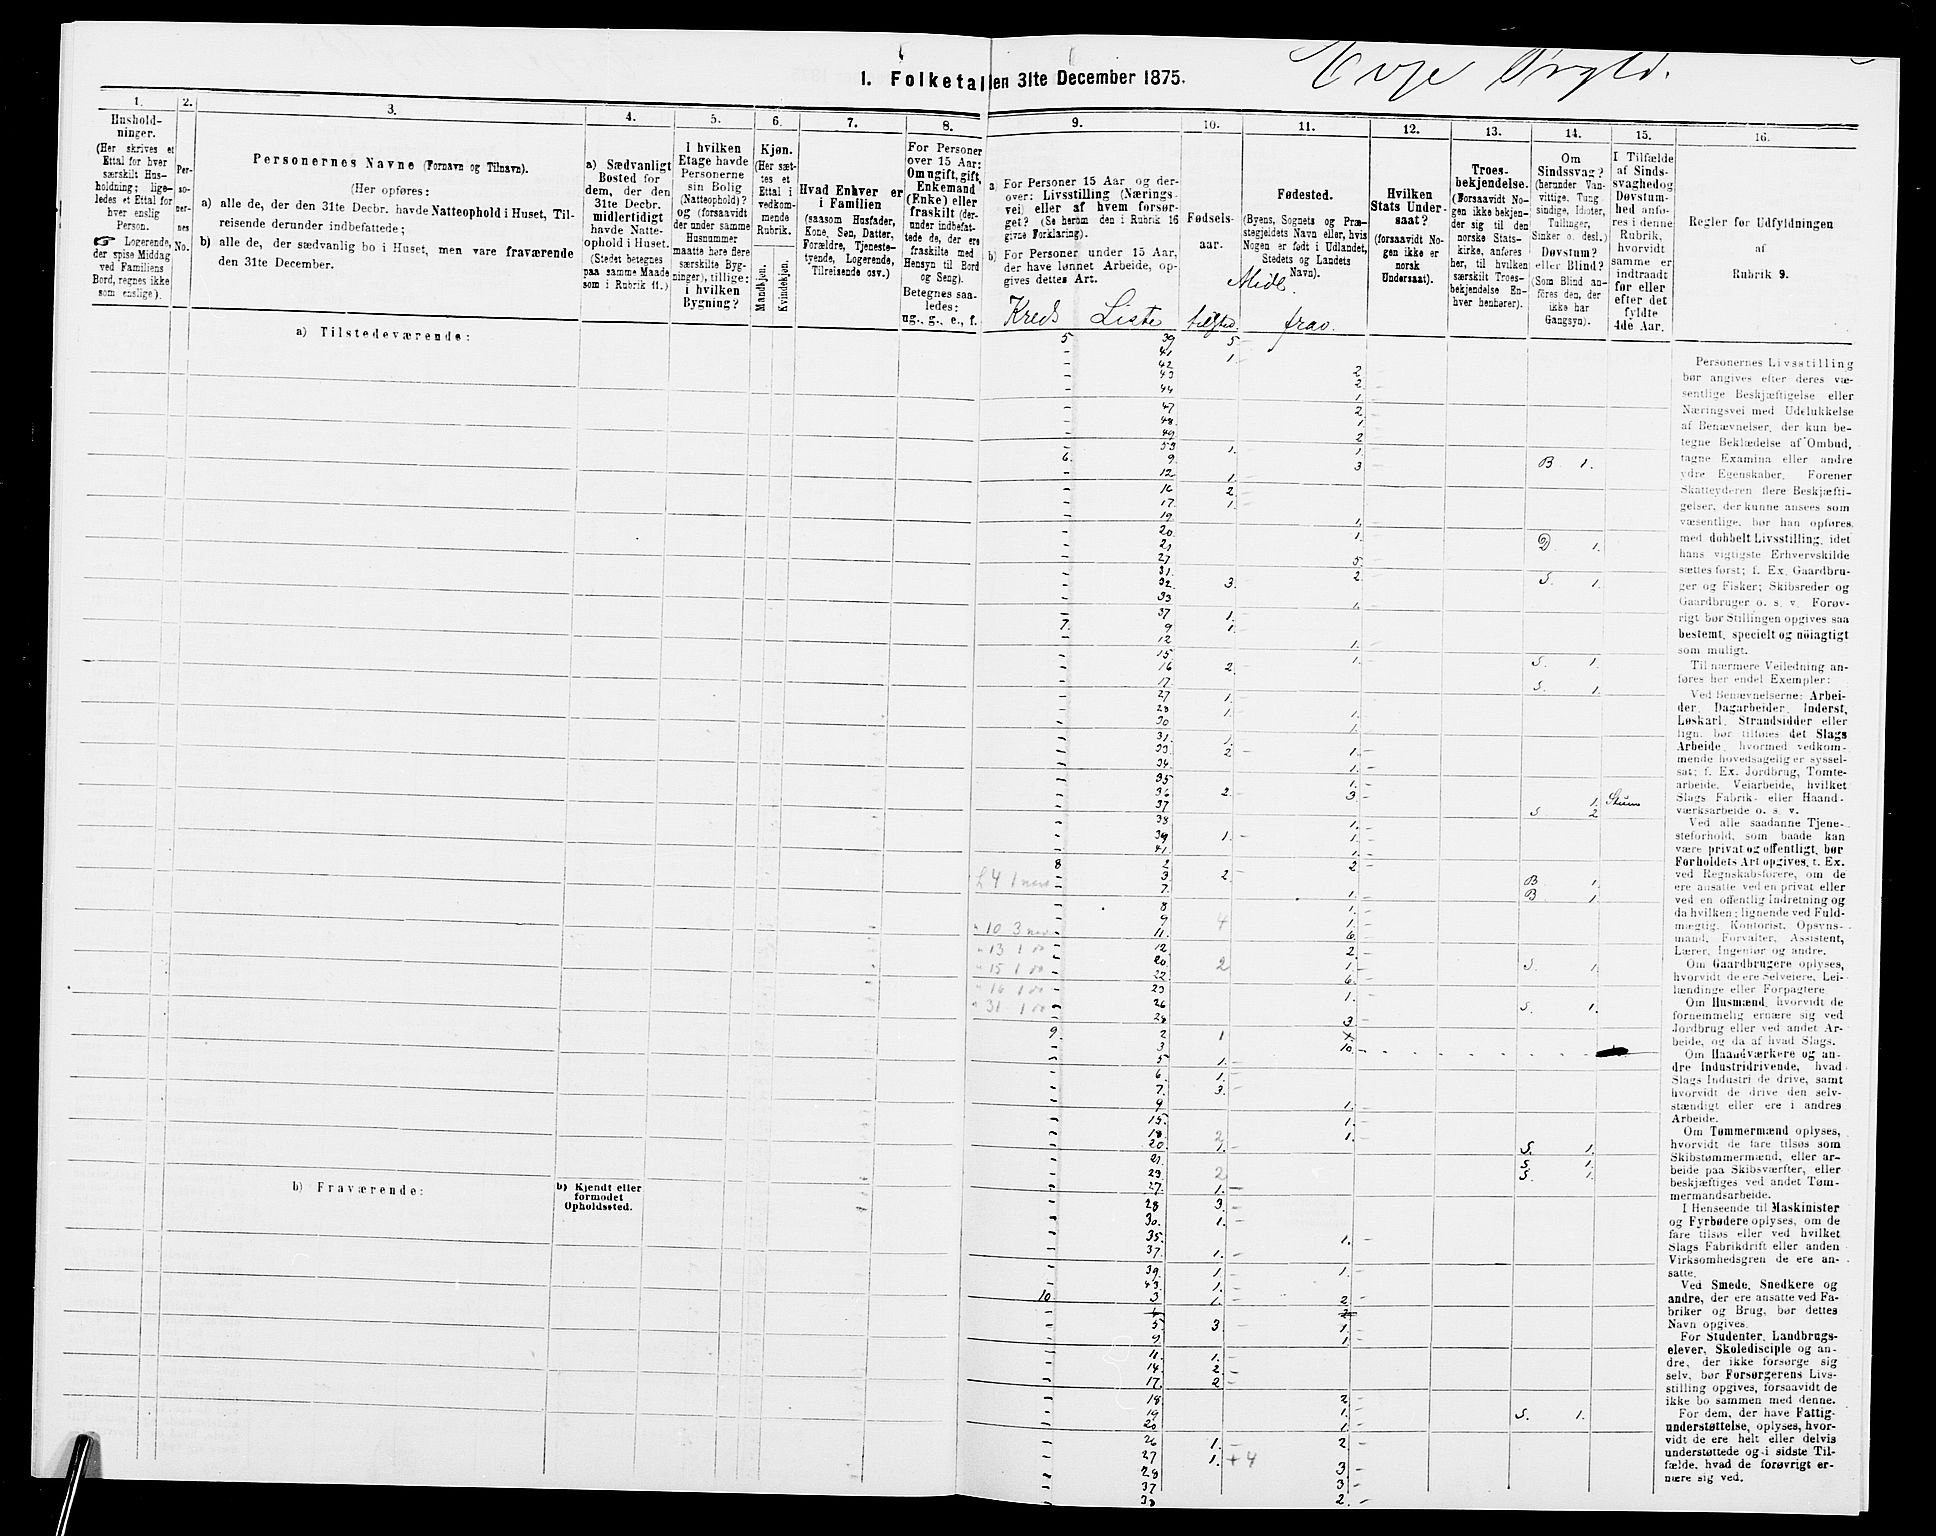 1. Folketallen 31te December 1875.
Evje
1.
Hushold-
ninger.
(Her skrives et
Ettal for hver
særskilt Hus-
holdning; lige-
ledes et Ettal for
hver enslig
Person.
☞ Logerende,
der spise Middag
ved Familiens
Bord, regnes ikke
som enslige).
2.
Per-
so-
ner-
nes
No.
3.
Personernes Navne (Fornavn og Tilnavn).
(Her opføres:
a) alle de, der den 31te Decbr. havde Natteophold i Huset, Til-
reisende derunder indbefattede;
b) alle de, der sædvanlig bo i Huset, men vare fraværende
den 31te December.
4.
a) Sædvanligt
Bosted for
dem, der den
31te Decbr.
midlertidigt
havde Natte-
ophold i Huset.
(Stedet betegnes
paa samme Maade
som i Rubrik 11.)
5.
I hvilken
Etage havde
Personerne
sin Bolig
(Natteophold)?
og (forsaavidt
der under samme
Husnummer
maatte høre flere
særskilte Byg-
ninger), tillige:
i hvilken
Bygning?
6.
Kjøn.
(Her sæt-
tes et
Ettal i
vedkom-
mende
Rubrik.
Mandkjøn.
Kvindekjøn.
7.
Hvad Enhver er
i Familien
(saasom Husfader,
Kone, Søn, Datter,
Forældre, Tjeneste-
tyende, Logerende,
Tilreisende osv.)
8.
For Personer
over 15 Aar:
Om ugift, gift,
Enkemand
(Enke) eller
fraskilt (der-
under indbefat-
tede de, der ere
fraskilte med
Hensyn til Bord
og Seng).
Betegnes saa-
ledes:
ug., g., e., f.
9.
a) For Personer 15 Aar og der-
over: Livsstilling (Nærings-
vei) eller af hvem forsør-
get? (Se herom den i Rubrik 16
givne Forklaring).
b) For Personer under 15 Aar,
der have lønnet Arbeide, op-
gives dettes Art.
Kreds Liste
10.
Fødsels-
aar.
tilsted.
11.
Fødested.
(Byens, Sognets og Præ-
stegjeldets Navn eller, hvis
Nogen er født i Udlandet,
Stedets og Landets
Navn).
Midl.
frav.
12.
Hvilken
Stats Under-
saat?
(forsaavidt No-
gen ikke er
norsk
Undersaat).
13.
Troes-
bekjendelse.
(Forsaavidt No-
gen ikke bekjen-
der sig til den
norske Stats-
kirke, anføres
her, til hvilken
særskilt Troes-
bekjendelse En-
hver henhører).
14.
Om
Sindssvag?
(herunder Van-
vittige, Tung
sindige, Idioter,
Tullinger,
Sinker o. desl.)
Døvstum?
eller Blind?
(Som Blind an-
føres den, der
ikke har
Gangsyn).
15.
I Tilfælde
af Sinds-
svaghed og
Døvstum-
hed anfø-
res i denne
Rubrik,
hvorvidt
samme er
indtraadt
før eller
efter det
fyldte
4de Aar.
16.
Regler for Udfyldningen
af
Rubrik 9.
a) Tilstedeværende:
5 39 5
- 41 1.
- 42
- 43 2
- 44 2
1
- 47 2
- 48 1
- 49 2
- 53 1. 1.
6. 9 3 B 1.
- 12 1.
- 16 2
- 17 1.
- 19 1.
- 20 1.
- 21 D 1.
- 27 5
- 31 2
- 32 3 S. 1.
- 33 1.
- 37 1.
7. 9 1.
- 12 1.
- 15 1.
- 16 2 S. 1.
- 17 S. 1.
- 27 1.
- 28 1. 1.
- 30 1.
- 31. 1.
- 33. 2 1.
- 34. 1.
- 35 1.
- 36 2 3
- 37 1. Stum
S 2
- 38 1.
- 39 1. 1.
- 41. 1.
8 2 2
- 3 2 B 1.
- 7. 1. B 1.
- 8 1.
- 9 4 1.
- 11. 6
- 12 2
- 20 2 1 S. 1.
- 22 6
- 23 1.
- 26 S. 1.
- 28 3
9. 2 1
- 3 10.
- 5 1.
- 6. 1.
- 7. 3.
- 9 1.
- 15. 1.
- 18. 2 1.
- 20 1. S. 1.
- 21. S. 1.
- 23. 2 S. 1.
- 27. 1.
- 28 3.
- 30. 1.
- 35. 1.
- 37. 1.
- 39. 1. 1.
- 43. 1.
10 3 1. 2
- 5 3 1.
- 9. 1.
- 11. 1.
- 14. 2.
- 17. 2
- 18 2
- 19 1. S. 1.
- 20 1.
- 26 1. 2
- 27 1. + 4
- 28 3
- 37 3
- 38 2.
b) Fraværende:
b) Kjendt eller
formodet
Opholdssted.
Personernes Livsstilling
bør angives efter deres væ-
sentlige Beskjæftigelse eller
Næringsvei med Udelukkelse
af Benævnelser, der kun be-
tegne Beklædelse af Ombud,
tagne Examina eller andre
ydre Egenskaber. Forener
Skatteyderen flere Beskjæfti-
gelser, der kunne ansees som
væsentlige, bør han opføres
med dobbelt Livsstilling, idet
hans vigtigste Erhvervskilde
sættes først; f. Ex. Gaardbru-
ger og Fisker; Skibsreder og
Gaardbruger o. s. v. Forøv-
rigt bør Stillingen opgives saa
bestemt, specielt og nøiagtigt
som muligt.
Til nærmere Veiledning an-
føres her endel Exempler:
Ved Benævnelserne: Arbei-
der, Dagarbeider, Inderst,
Løskarl, Strandsidder eller
lign. bør tilføies det Slags
Arbeide, hvormed vedkom-
mende hovedsagelig er syssel-
sat; f. Ex. Jordbrug, Tomte-
arbeide, Veiarbeide, hvilket
Slags Fabrik- eller Haand-
værksarbeide o. s. v.
Ved alle saadanne Tjene-
steforhold, som baade kan
være privat og offentligt, bør
Forholdets Art opgives, f. Ex.
ved Regnskabsførere, om de
ere ansatte ved en privat eller
ved en offentlig Indretning og
da hvilken; lignende ved Fuld-
mægtig, Kontorist, Opsyns-
mand, Forvalter, Assistent,
Lærer, Ingeniør og andre.
Om Gaardbrugere oplyses,
hvorvidt de ere Selveiere, Lei-
lændinge eller Forpagtere.
Om Husmænd, hvorvidt de
fornemmelig ernære sig ved
Jordbrug eller ved andet Ar-
beide, og da af hvad Slags.
Om Haandværkere og an-
dre Industridrivende, hvad
Slags Industri de drive, samt
hvorvidt de drive den selv-
stændigt eller ere i andres
Arbeide.
Om Tømmermænd oplyses,
hvorvidt de fare tilsøs som
Skibstømmermænd, eller ar-
beide paa Skibsværfter, eller
beskjæftiges ved andet Tøm-
mermandsarbeide.
I Henseende til Maskinister
og Fyrbødere oplyses, om de
fare tilsøs eller ved hvilket
Slags Fabrikdrift eller anden
Virksomhedsgren de ere an-
satte.
Ved Smede, Snedkere og
andre, der ere ansatte ved Fa-
briker og Brug, bør dettes
Navn opgives.
For Studenter, Landbrugs-
elever, Skoledisciple og an-
dre, der ikke forsørge sig
selv, bør Forsørgerens Livs-
stilling opgives, forsaavidt de
ikke bo sammen med denne.
For dem, der have Fattig-
understøttelse, oplyses, hvor-
vidt de ere helt eller delvis
understøttede og i sidste Til-
fælde, hvad de forøvrigt er-
nære sig ved.